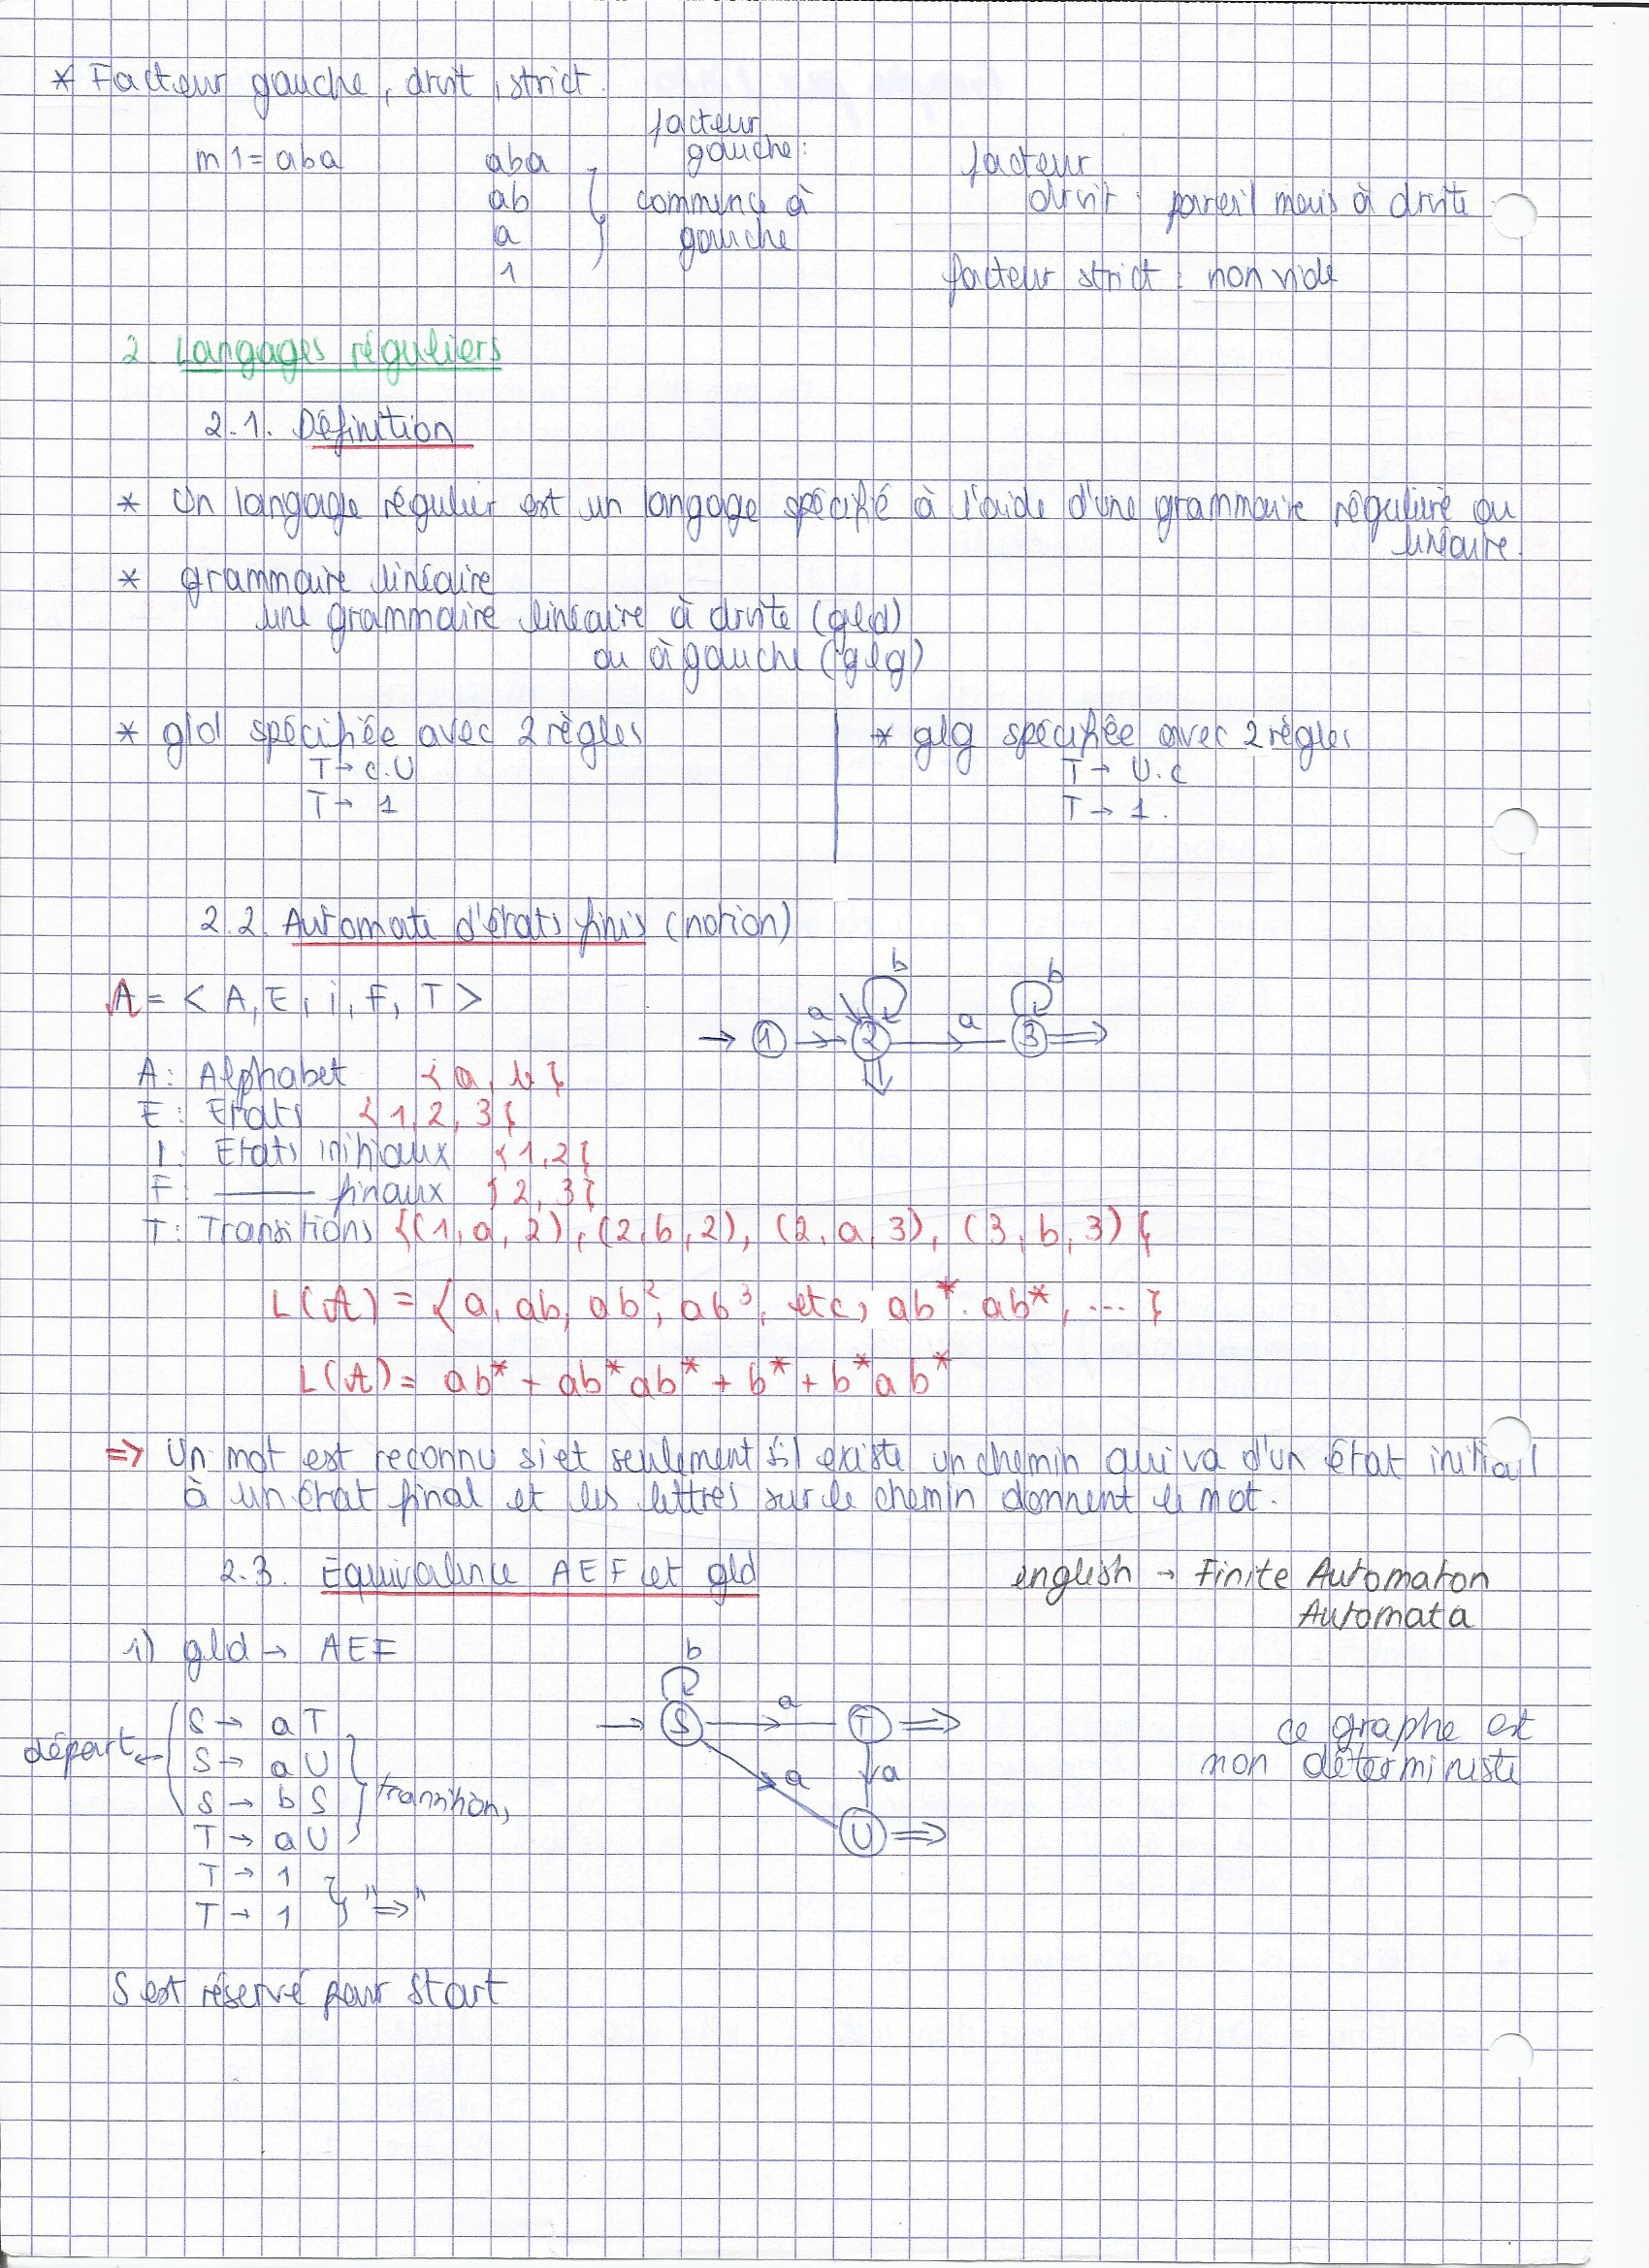 * Facteur gauche, droit, strict.
m1 = aba
aba
ab
a
1
facteur
gauche:
commence à
gauche
facteur
droit : pareil mais à droite
facteur strict : non vide
2. Langages réguliers
2.1. Définition
* Un langage régulier est un langage spécifié à l'aide d'une grammaire régulière ou
linéaire.
* grammaire linéaire
une grammaire linéaire à droite (gld)
ou à gauche (glg)
* gld spécifiée avec 2 règles
T → c.U
T → 1
* glg spécifiée avec 2 règles
T → U.c
T → 1.
2.2. Automate d'états finis (notion)
A = < A, E, i, F, T >
→ 1 a 2 b a 3 b
A: Alphabet { a, b }
E: Etats { 1, 2, 3 }
I: Etats initiaux { 1, 2 }
F: —— finaux { 2, 3 }
T: Transitions {(1, a, 2), (2, b, 2), (2, a, 3), (3, b, 3) }
L(A) = { a, ab, ab², ab³, etc, ab*.ab*, ... }
L(A) = ab* + ab*ab* + b* + b*ab*
=> Un mot est reconnu si et seulement s'il existe un chemin qui va d'un état initial
à un état final et les lettres sur le chemin donnent le mot.
2.3. Equivalence AEF et gld
english → Finite Automaton
Automata
1) gld → AEF
départ ←
S → aT
S → aU
S → bS
T → aU
T → 1
T → 1
transitions
"=>"
b
S a T
a a
U
ce graphe est
non déterministe
S est réservé pour start